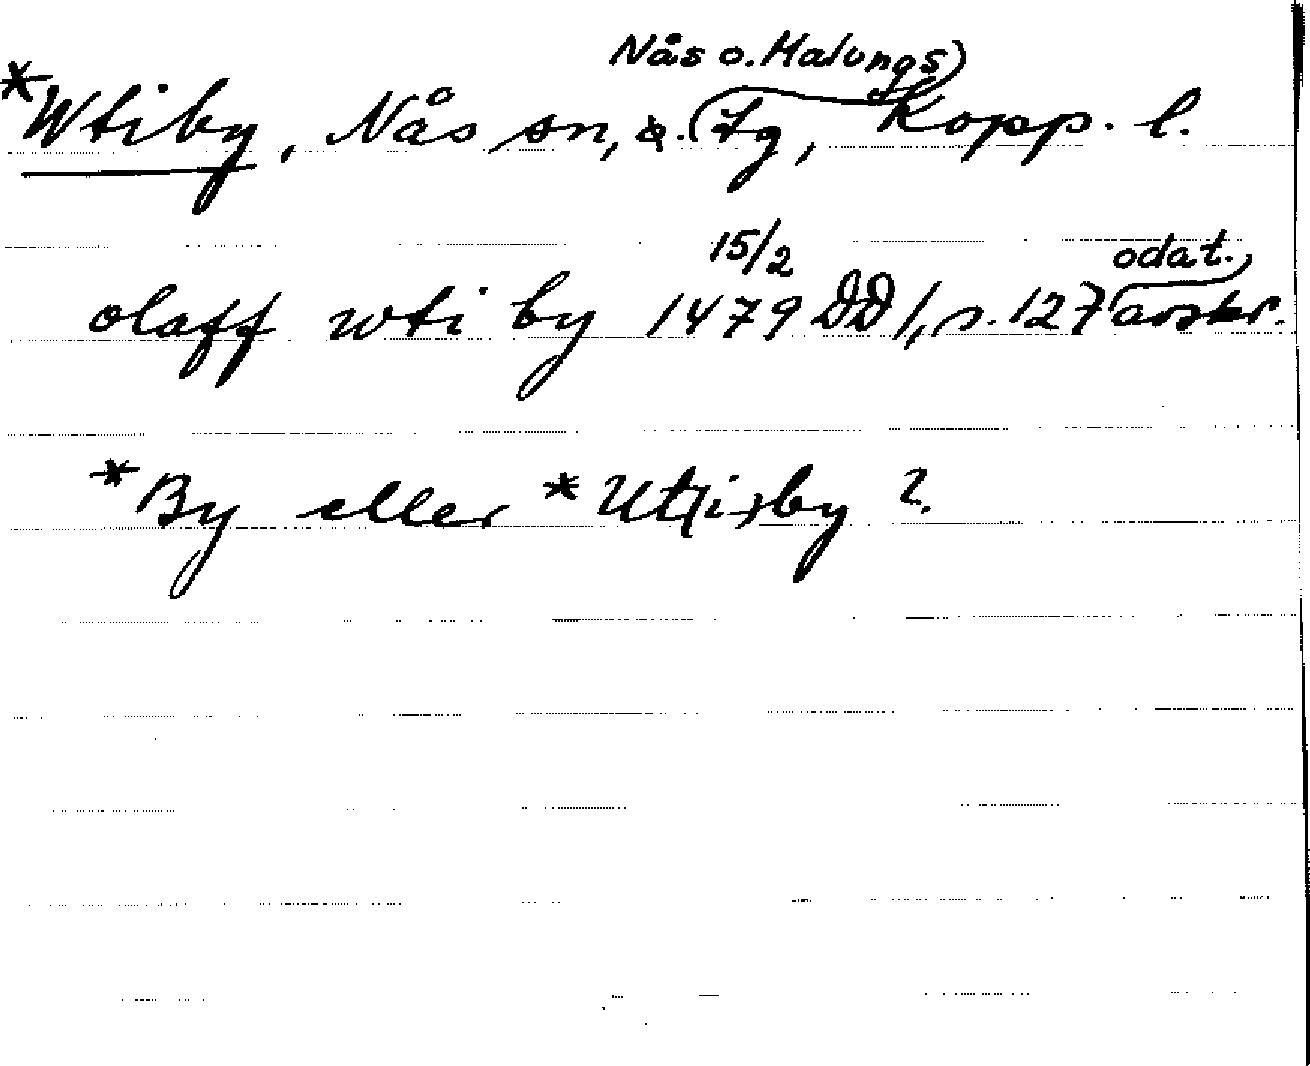 Nås o. Malungs
*Wtiby, Nås sn, Tg, Kopp. l.
15/2 odat.
olaff wti by 1479 DD 1, s. 127 avskr.
*By eller *Ut(i)by?